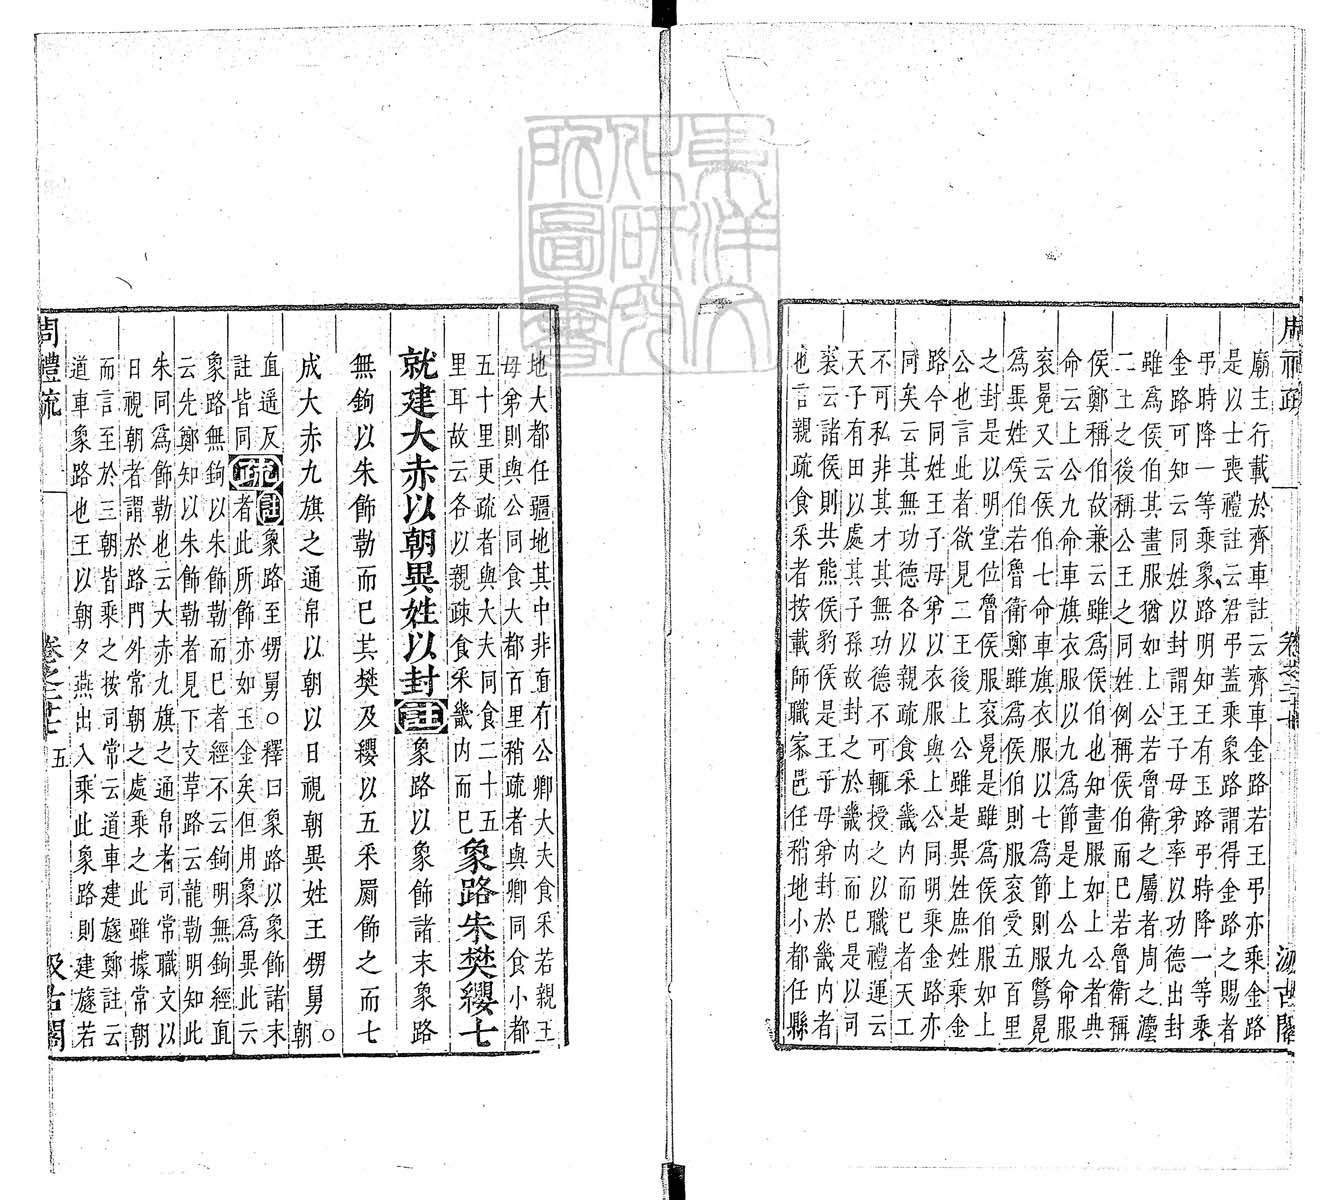 周禮疏
卷之二十七
汲古閣
廟主行載於齊車註云齊車金路若王弔亦乘金路
是以士喪禮註云君弔蓋乘象路謂得金路之賜者
弔時降一等乘象路明知王有玉路弔時降一等乘
金路可知云同姓以封謂王子母弟率以功德出封
雖爲侯伯其畫服猶如上公若魯衛之屬者周之灋
二王之後稱公王之同姓例稱侯伯而已若魯衛稱
侯鄭稱伯故兼云雖爲侯伯也知畫服如上公者典
命云上公九命車旗衣服以九爲節是上公九命服
衮冕又云侯伯七命車旗衣服以七爲節則服鷩冕
爲異姓侯伯若魯衛鄭雖爲侯伯則服衮受五百里
之封是以明堂位魯侯服衮冕是雖爲侯伯服如上
公也言此者欲見二王後上公雖是異姓庶姓乘金
路今同姓王子母弟以衣服與上公同明乘金路亦
同矣云其無功德各以親疏食采畿內而已者天工
不可私非其才其無功德不可輒授之以職禮運云
天子有田以處其子孫故封之於畿内而已是以司
裘云諸侯則共熊侯豹侯是王子母弟封於畿内者
也言親疏食采者按載師職家邑任稍地小都任縣
地大都任疆地其中非直有公卿大夫食采若親王
母弟則與公同食大都百里稍疏者與卿同食小都
五十里更疏者與大夫同食二十五
里耳故云各以親疎食采畿内而已
象路朱樊纓七
就建大赤以朝異姓以封註象路以象飾諸末象路
無鉤以朱飾勒而已其樊及纓以五采罽飾之而七
成大赤九旗之通帛以朝以日視朝異姓王甥舅○朝
直遥反
註皆同
疏註象路至甥舅○釋曰象路以象飾諸末
者此所飾亦如玉金矣但用象爲異此云
象路無鉤以朱飾勒而已者經不云鉤明無鉤經直
云先鄭知以朱飾勒者見下文革路云龍勒明知此
朱同爲飾勒也云大赤九旗之通帛者司常職文以
日視朝者謂於路門外常朝之處乘之此雖據常朝
而言至於三朝皆乘之按司常云道車建旞鄭註云
道車象路也王以朝夕燕出入乘此象路則建旞若
周禮疏
卷之二十七
五
汲古閣
東洋文化研究所圖書